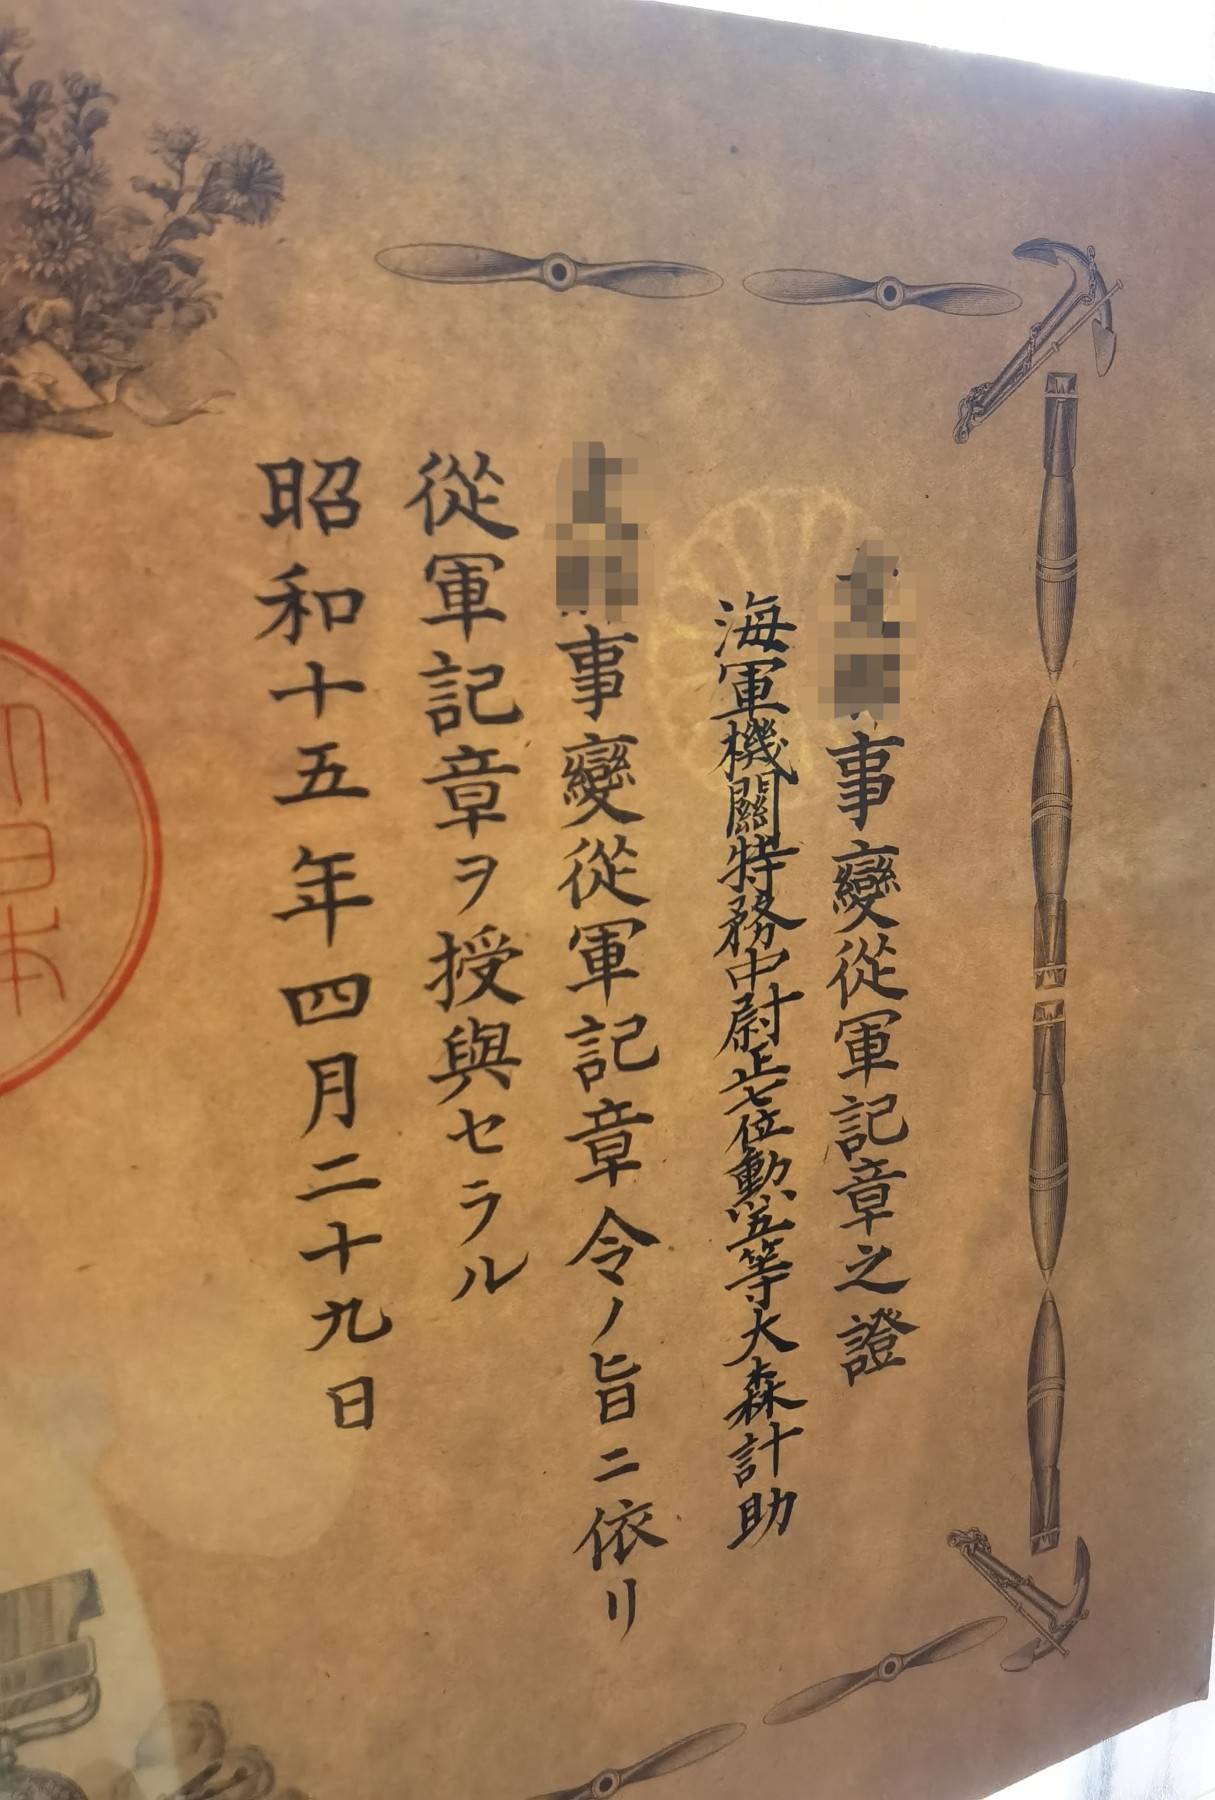 事變從軍記章之證
海軍機關特務中尉正七位勲五等大森計助
事變從軍記章令ノ旨ニ依リ
從軍記章ヲ授與セラル
昭和十五年四月二十九日